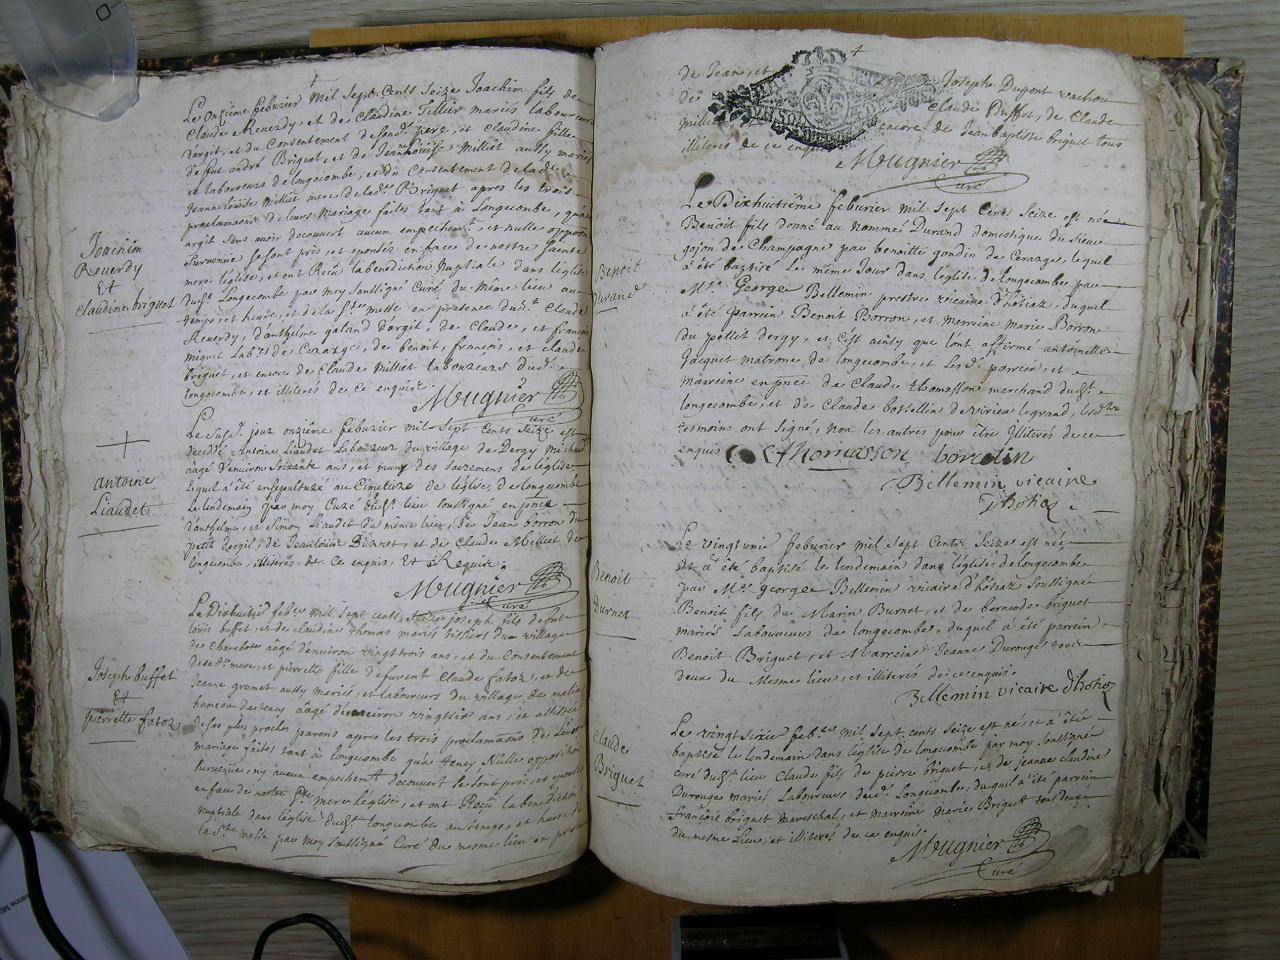 Le onzième febvrier mil sept cents seize Joachim fils de
Claude Reverdy, et de Claudine Tillier mariés laboureurs
d'argit, et du Consentement desond. pere, et Claudine fille
de ffut andré Briguet, et de Jeanne Louise Milliet aussy mariés
et laboureurs de longecombe, et du Consentement de lade.
Jeanne Louise Milliet mere de lade. Briguet apres les trois
proclamaons de leurs Mariage faites tant à Longecombe, qu'a
argit sans avoir decouvert aucun empechemt. et nulle opposon
survenüe se sont pris et epousés en face de nostre sainte
mere léglise, et ont Reçû la benediction Nuptiale dans léglise
dud. Longecombe par moy soussigné Curé du même lieu au
temps, et heure, et de la ste. messe en presence dud. Claude
Reverdy, d'anthelme galand dargit, de Claude, et françois
miguet Labrs. de Cerarge, de benoit, françois, et claude
briguet, et encore de Claude Milliet laboureurs dud.
longecombe, et illiterés de ce enquis.
Mugnier
Curé
Joachim
Reverdy
Et
Claudine briguet
Le susd. jour onzième febvrier mil sept cents seize est
decedé Antoine Liaudet Laboureur du village de Dergy
aagé d'environ soixante ans, et muny des sacremens de léglise
lequel a été ensepulturé au Cimetiere de léglise de longecombe
le lendemain par moy Curé dud. lieu soussigné en pnce
d'anthelme, et Simon Liaudet du même lieu, de Jean borron du
petit dergit, de Jean louis Biznet, et de Claude Milliet de
longecombe, illiterés de Ce enquis. Et Requis.
Mugnier
Curé
antoine
Liaudet
Le Dixhuitie febvr. mil sept cents seize joseph fils de fut
louis buffet, et de claudine thomas mariés du village
de charabotes aagé denviron vingt trois ans, et du Consentement
de sad. mere, et pierrette fille de furent Claude fatoz, et de
Jeanne grunet aussy mariés, et laboureurs du village de
hameau de aagé denviron vingtsix ans, et assistée
de ses plus proches parens apres les trois proclamaons de leurs
mariage faites tant à longecombe qua heney Nulle opposition
survenüe, ny aucun empechemt. decouvert se sont pris, et epousés
en face de nostre ste. mere léglise, et ont Reçû la benediction
nuptiale dans léglise dud. longecombe au temps, et heure de
la ste. messe par moy soussigné Curé du mesme lieu en presence
Joseph buffet
Et
pierrette fatoz
de Jean, et Josephe Dupont vachou
de Claude Buffet, de Claude
milliet encore de Jean baptiste briguet tous
illiterés de ce enquis
Mugnier
Curé
Le Dixhuitième febvrier mil sept Cents seize est né
Benoit fils donné au nommé Durand domestique du sieur
gojon de Champagne par benoitte gondin de Cerarge, lequel
a été baptisé Le même Jour dans léglise de longecombe par
Mre. George Bellemin prestre vicaire d'hotiaz, duquel
a été parrein Benoit Borron, et marreine marie Borron
du pettit dergy, et C'est ainsy que lont affirmé antoinette
Jacquet matrone de longecombe, et Lesd. parrein, et
marreine en pnce de Claude thomasson marchand dud.
longecombe, et de Claude bossellin de virieu legrand, lesd.
temoins ont signé, non les autres pour être illiterés de ce
enquis
C Thomasson
Bellemin vicaire
Dhotiaz
Benoit
Durand
Le vingt unie febvrier mil sept Cents seize est né
Et a été baptisé le lendemain dans léglise de longecombe
par Mre. george Bellemin vicaire d'hotiaz soussigné
Benoit fils de Marin Burnet, et de bernarde briguet
mariés Laboureurs de longecombe, duquel a été parrein
Benoit Briguet, et Marreine Jeanne Durouge tous
deux du Mesme lieu, et illiterés de ce enquis.
Bellemin vicaire dhotiaz
Benoit
Burnet
Le vingt seizie febvr. mil sept cents seize est né, et a été
baptisé le lendemain dans léglise de longecombe par moy soussigné
curé dud. lieu Claude fils de pierre briguet, et de jeanne claudine
Durouge mariés Laboureurs de Longecombe, duquel a été parrein
françois briguet mareschal, et marreine marie Briguet tous deux
du mesme Lieu, et illiterés de ce enquis.
Mugnier
Curé
Claude
Briguet